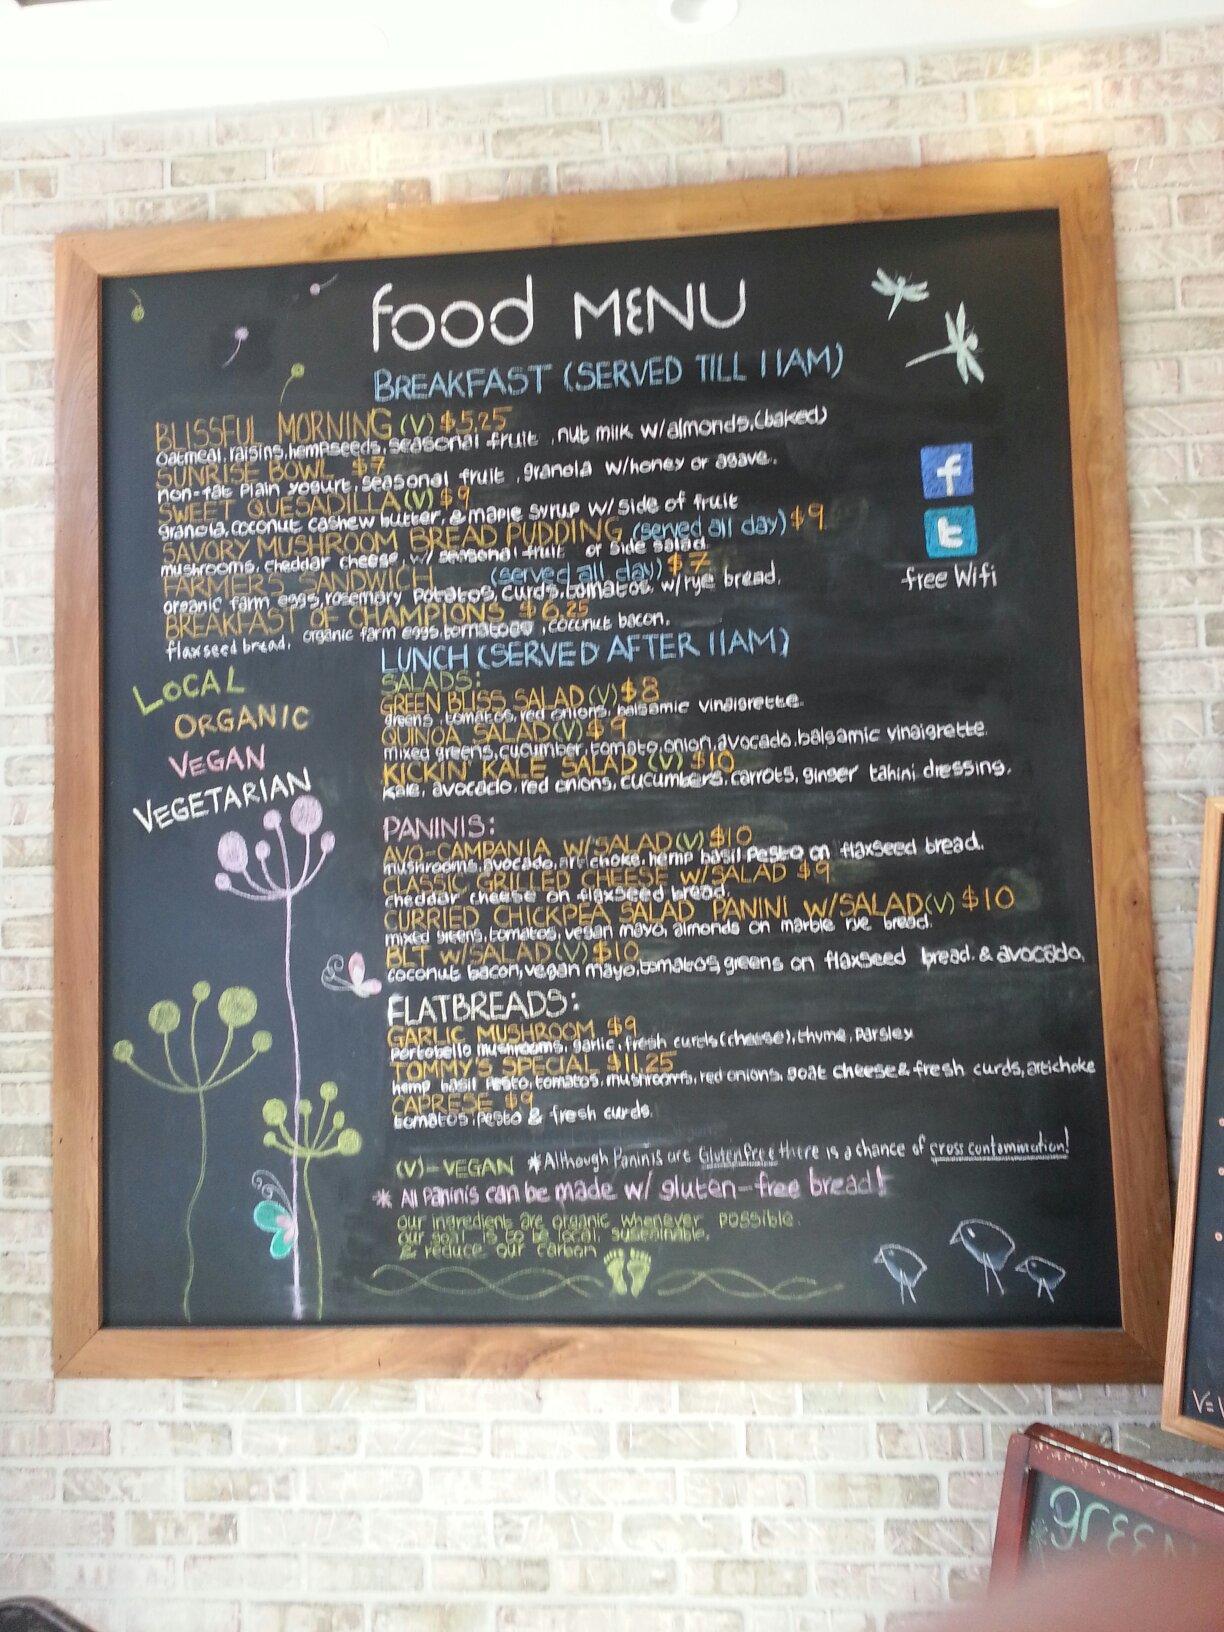 food MENU
BREAKFAST (SERVED TILL 11AM)
BLISSFUL MORNING (V) $5.25
oatmeal, raisins, hempseeds, seasonal fruit, nut milk w/almonds, (baked)
SUNRISE BOWL $7
non-fat plain yogurt, seasonal fruit, granola w/honey or agave.
SWEET QUESADILLA (V) $9
granola, coconut cashew butter, & maple syrup w/ side of fruit
SAVORY MUSHROOM BREAD PUDDING (served all day) $9
mushrooms, cheddar cheese, w/ seasonal fruit or side salad.
FARMERS SANDWICH (served all day) $7
organic farm eggs, rosemary potatos, curds, tomatos, w/rye bread.
BREAKFAST OF CHAMPIONS $6.25
organic farm eggs, tomatoes, coconut bacon.
flaxseed bread.
f
t
free Wifi
LUNCH (SERVED AFTER 11AM)
LOCAL
ORGANIC
VEGAN
VEGETARIAN
SALADS:
GREEN BLISS SALAD (V) $8
greens, tomatos, red onions, balsamic vinaigrette.
QUINOA SALAD (V) $9
mixed greens, cucumber, tomato, onion, avocado, balsamic vinaigrette.
KICKIN' KALE SALAD (V) $10
kale, avocado, red onions, cucumbers, carrots, ginger tahini dressing.
PANINIS:
AVO-CAMPANIA W/SALAD (V) $10
mushrooms, avocado, artichoke, hemp basil pesto on flaxseed bread.
CLASSIC GRILLED CHEESE W/SALAD $9
cheddar cheese on flaxseed bread.
CURRIED CHICKPEA SALAD PANINI W/SALAD (V) $10
mixed greens, tomatos, vegan mayo, almonds on marble rye bread.
BLT W/SALAD (V) $10
coconut bacon, vegan mayo, tomatos, greens on flaxseed bread. & avocado.
FLATBREADS:
GARLIC MUSHROOM $9
portobello mushrooms, garlic, fresh curds (cheese), thyme, parsley
TOMMY'S SPECIAL $11.25
hemp basil pesto, tomatos, mushrooms, red onions, goat cheese & fresh curds, artichoke
CAPRESE $9
tomatos, pesto & fresh curds.
(V) = VEGAN *Although Paninis are Glutenfree there is a chance of cross contamination!
* All Paninis can be made w/ gluten-free bread!
our ingredient are organic whenever possible.
our goal is to be local, sustainable,
& reduce our carbon
V=
green